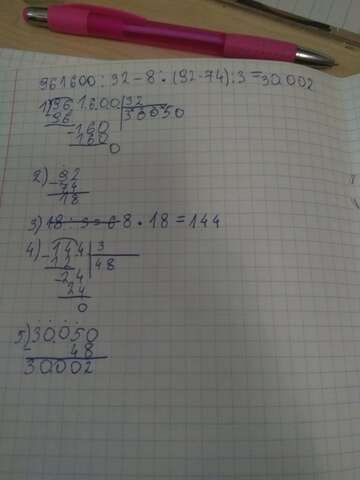 961600:32-8·(92-74):3=30.002
1) 961.600 32
- 96 30050
- 160
160
0
2) - 92
74
18
3) 18:3=6 8·18=144
4) - 144 3
12 48
- 24
24
0
5) 30.050
- 48
30.002